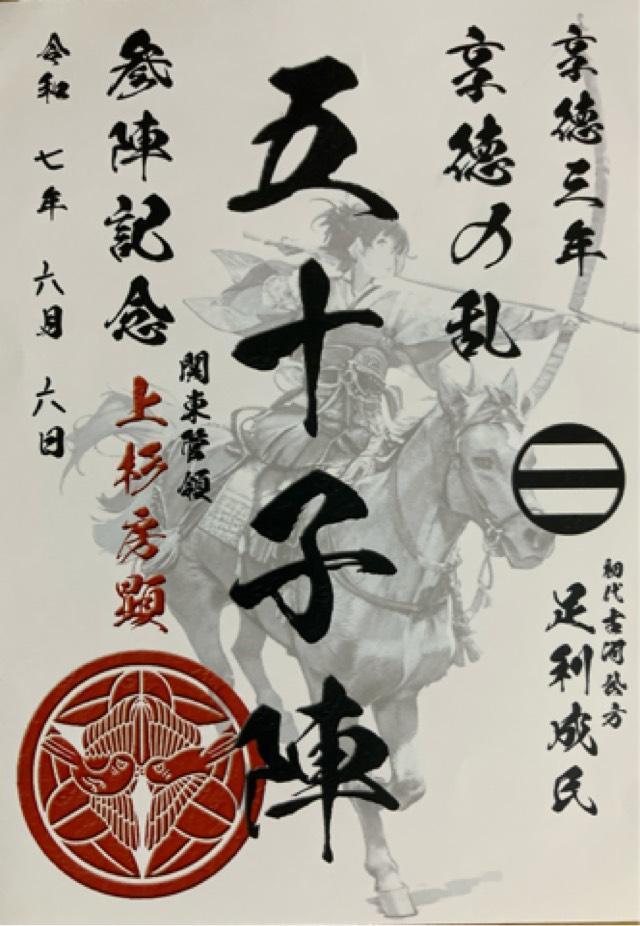 享徳三年
享徳の乱
初代古河公方
足利成氏
五十子陣
関東管領
上杉房顕
参陣記念
令和 七年 六月 六日